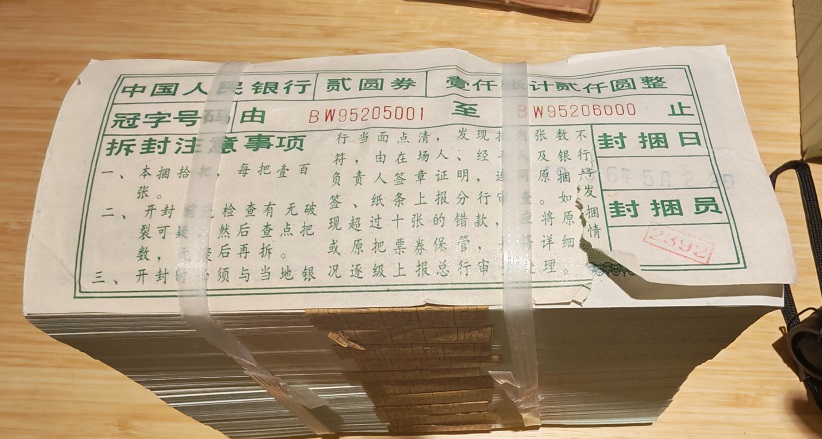 中国人民银行 贰圆券 壹仟张计贰仟圆整
冠字号码由 BW95205001 至 BW95206000 止
拆封注意事项
一、本捆拾把，每把壹百
张。
二、开封前先检查有无破
裂可疑，然后查点把
数，无误后再拆。
三、开封时必须与当地银
行当面点清，发现捆内张数不
符，由在场人、经手人及银行
负责人签章证明，连同原捆封
签、纸条上报分行审查。如发
现超过十张的错款，应将原捆
或原把票券保管，并将详细情
况逐级上报总行审查处理。
封捆日
封捆员
2392